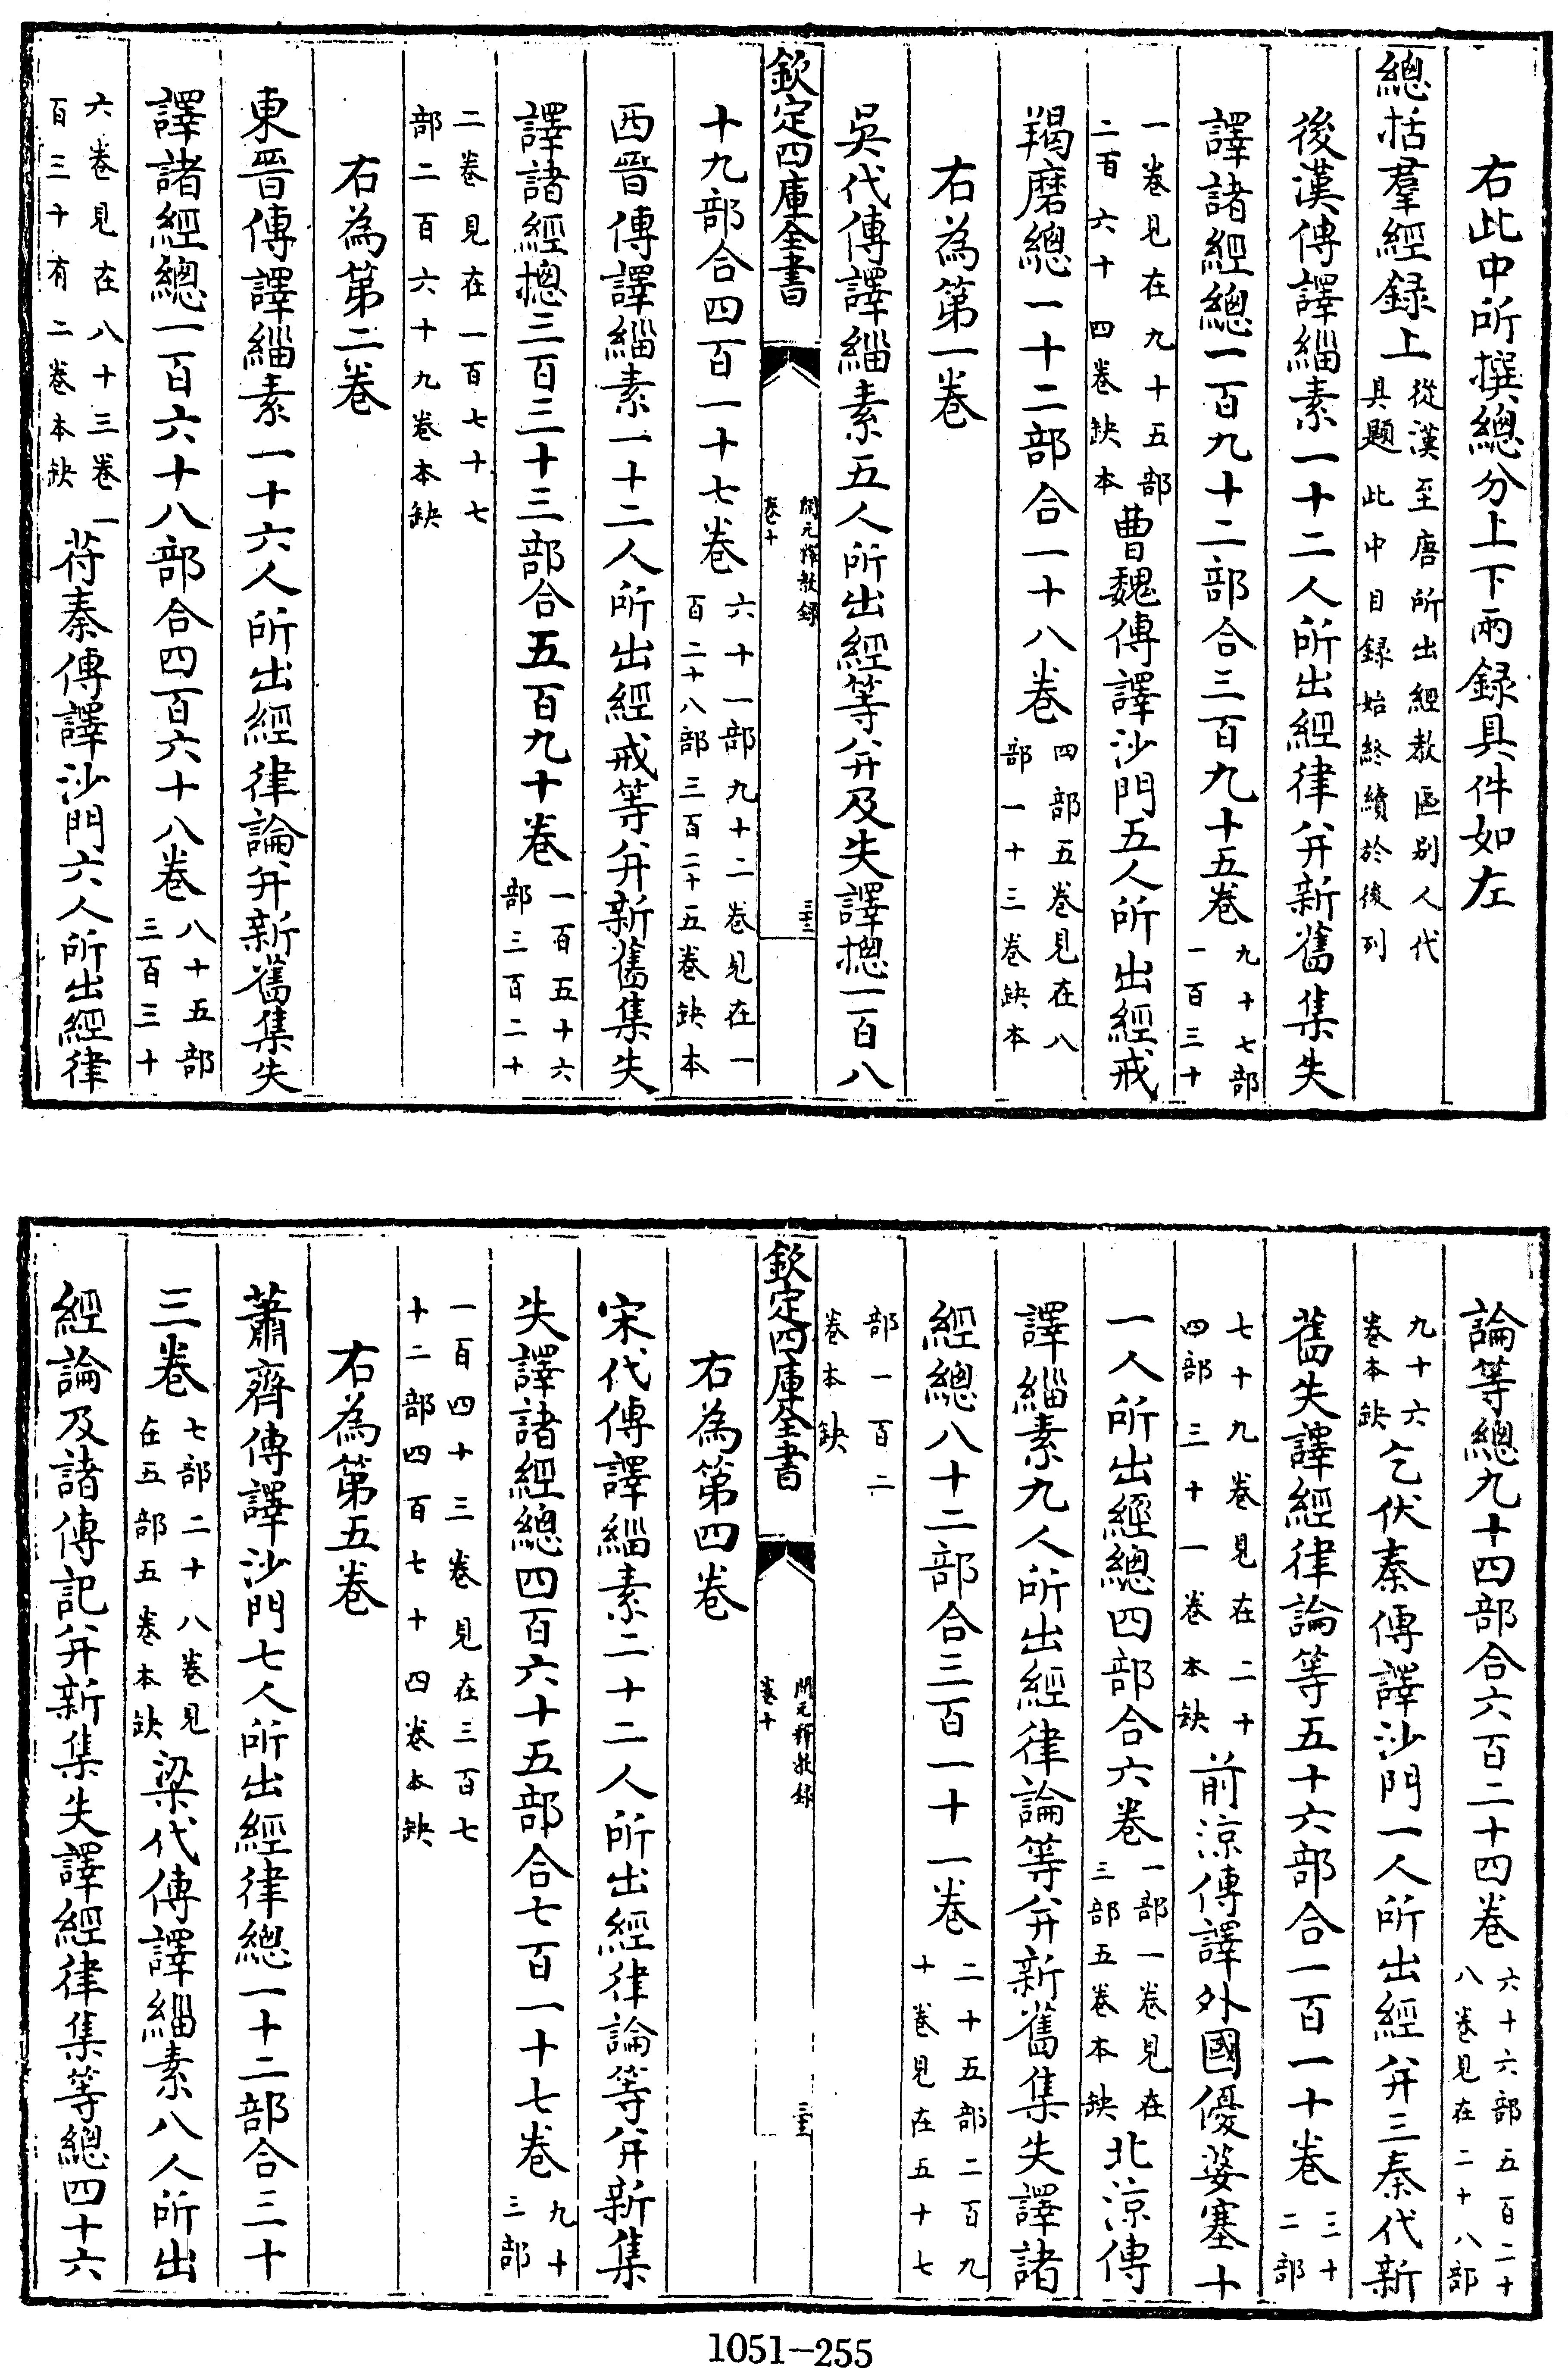 右此中所撰總分上下兩録具件如左
總括羣經録上從漢至唐所出經教區别人代具題此中目録始終續於後列
後漢傳譯緇素一十二人所出經律并新舊集失
譯諸經總一百九十二部合三百九十五卷九十七部一百三十
一卷見在九十五部二百六十四卷缺本曹魏傳譯沙門五人所出經戒
羯磨總一十二部合一十八卷四部五卷見在八部一十三卷缺本
右為第一卷
吳代傳譯緇素五人所出經等并及失譯摠一百八
欽定四庫全書
開元釋教録
卷十
三十三
十九部合四百一十七卷六十一部九十二卷見在一百二十八部三百二十五卷缺本
西晉傳譯緇素一十二人所出經戒等并新舊集失
譯諸經摠三百三十三部合五百九十卷一百五十六部三百二十
二卷見在一百七十七部二百六十九卷本缺
右為第二卷
東晉傳譯緇素一十六人所出經律論并新舊集失
譯諸經總一百六十八部合四百六十八卷八十五部三百三十
六卷見在八十三卷一百三十有二卷本缺苻秦傳譯沙門六人所出經律
論等總九十四部合六百二十四卷六十六部五百二十八卷見在二十八部
九十六卷本缺乞伏秦傳譯沙門一人所出經并三秦代新
舊失譯經律論等五十六部合一百一十卷三十二部
七十九卷見在二十四部三十一卷本缺前涼傳譯外國優婆塞十
一人所出經總四部合六卷一部一卷見在三部五卷本缺北涼傳
譯緇素九人所出經律論等并新舊集失譯諸
經總八十二部合三百一十一卷二十五部二百九十卷見在五十七
部一百二卷本缺
欽定四庫全書
開元釋教録
卷十
右為第四卷
宋代傳譯緇素二十二人所出經律論等并新集
失譯諸經總四百六十五部合七百一十七卷九十三部
一百四十三卷見在三百七十二部四百七十四卷本缺
右為第五卷
蕭齊傳譯沙門七人所出經律總一十二部合三十
三卷七部二十八卷見在五部五卷本缺梁代傳譯緇素八人所出
經論及諸傳記并新集失譯經律集等總四十六
1051-255